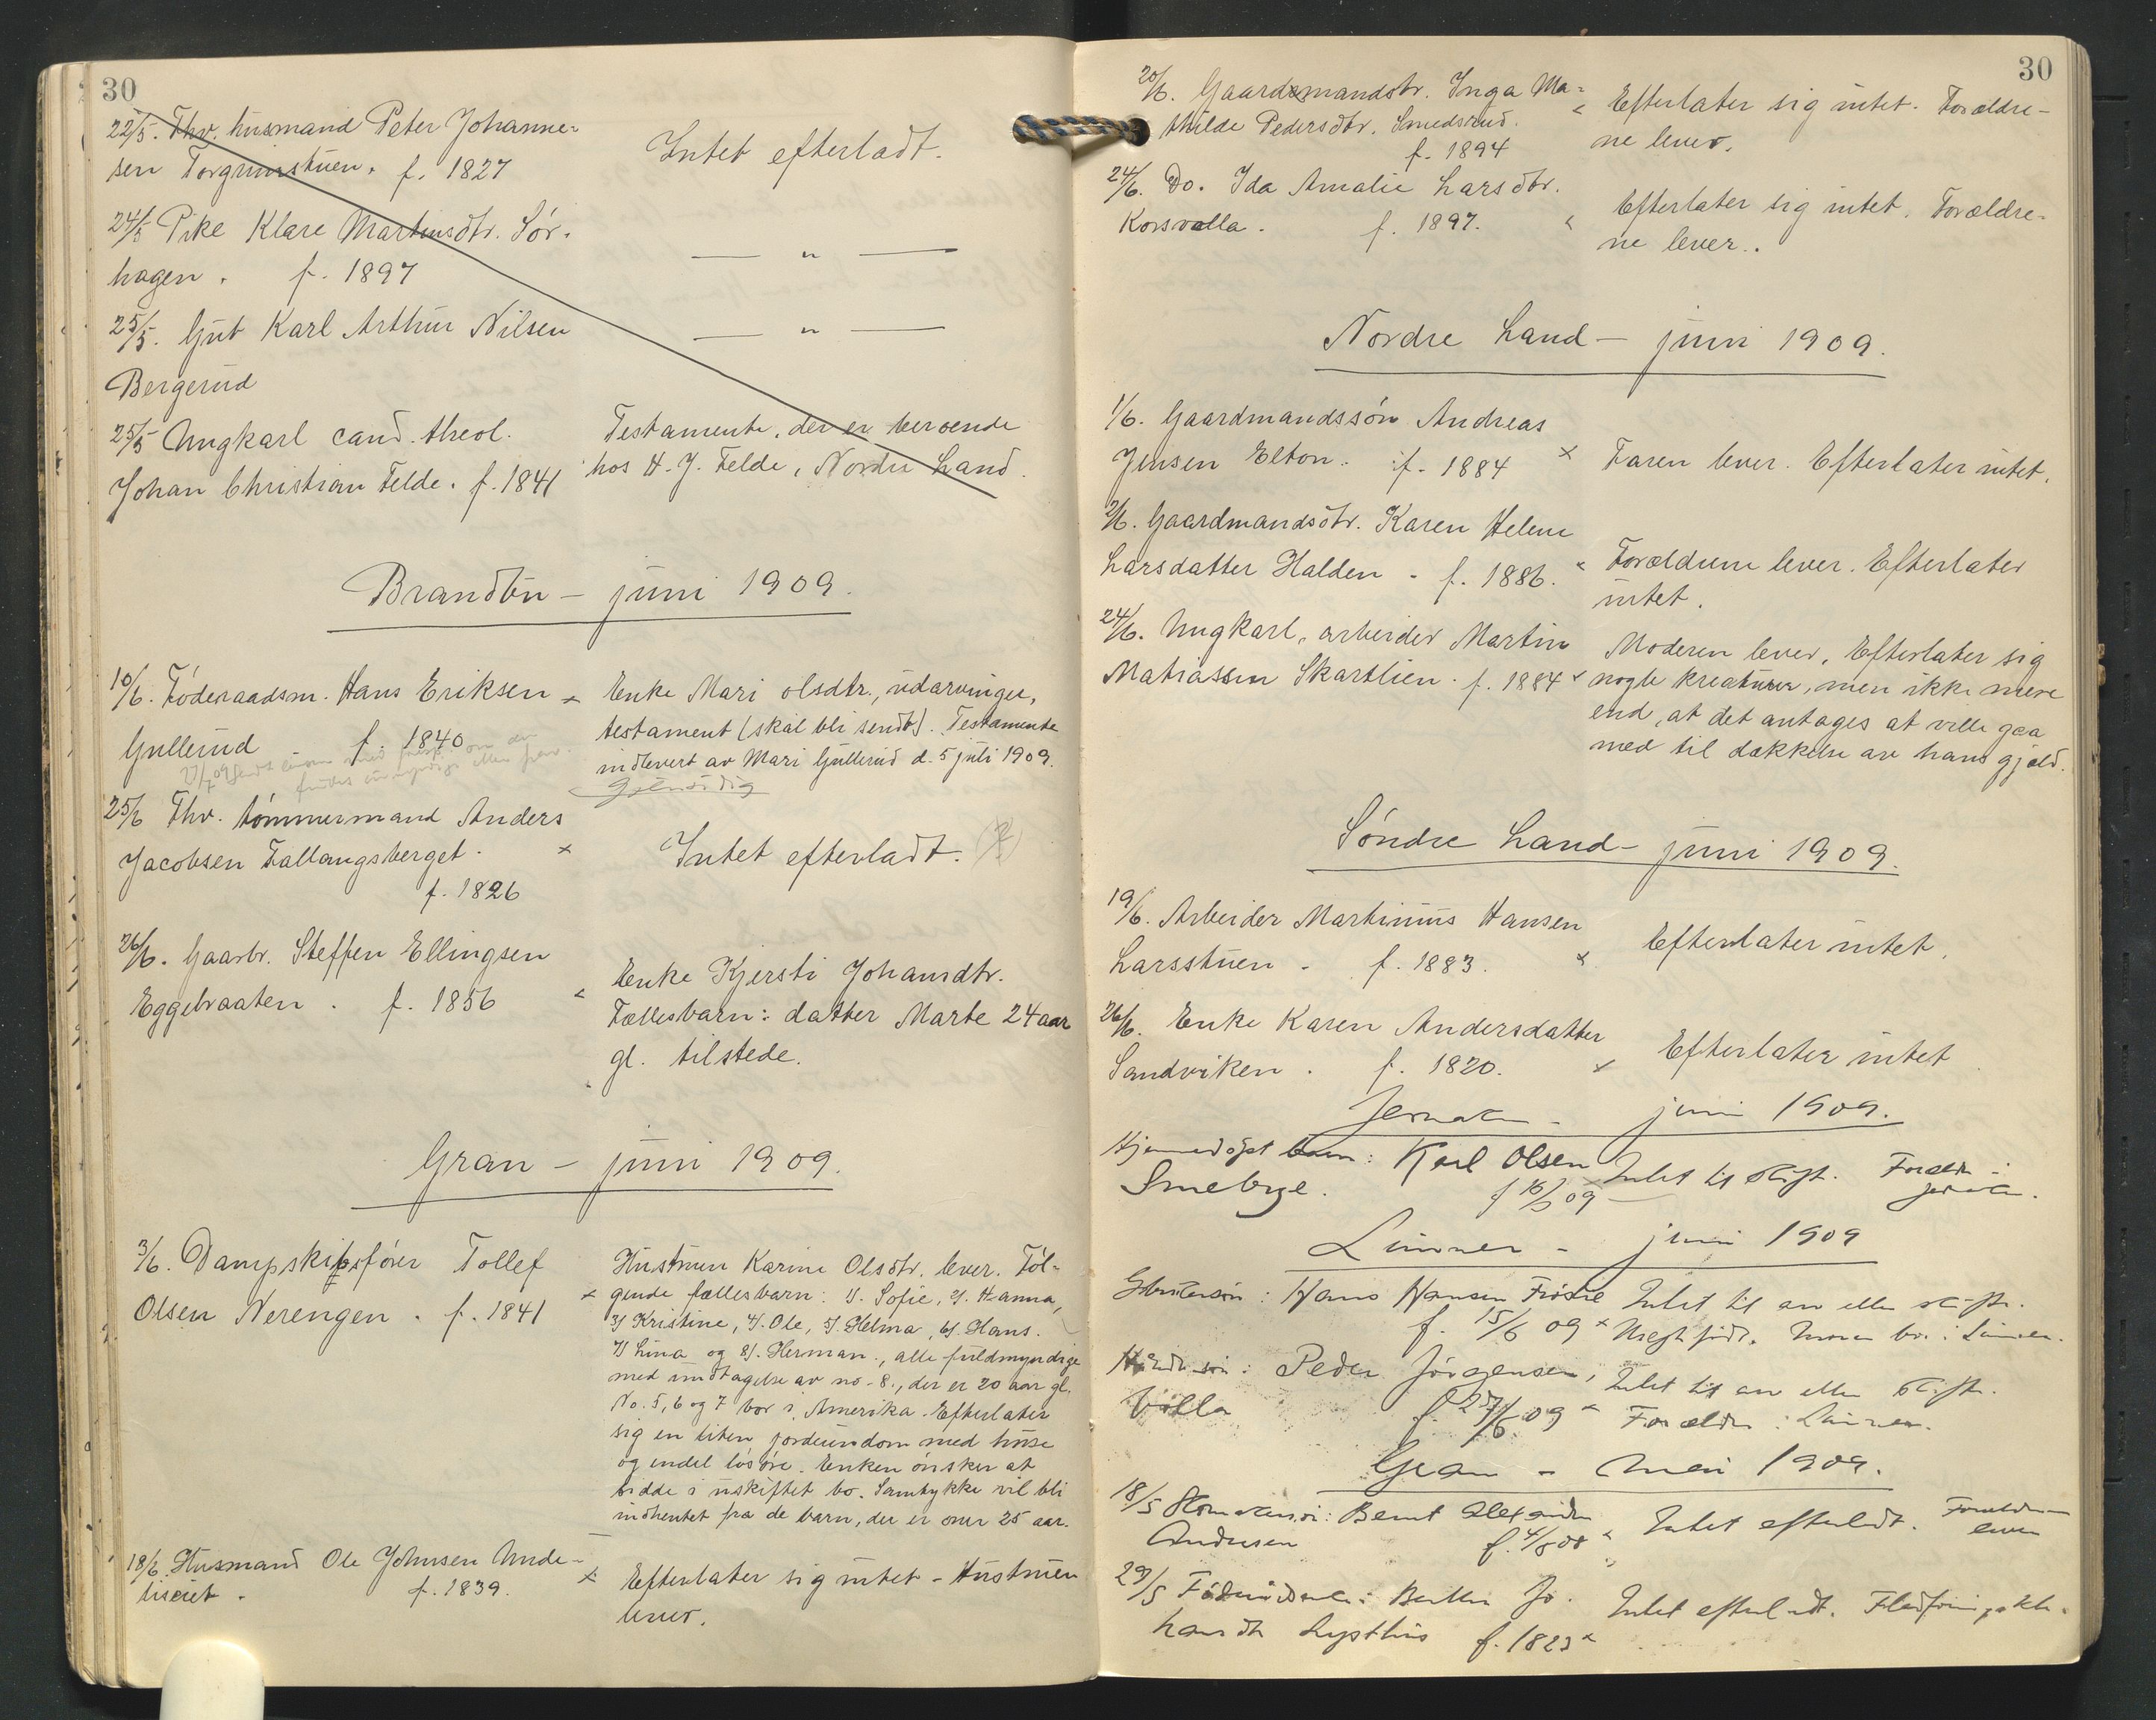 30
22/5. Fhv. husmand Peter Johanne-
sen Torgrimstuen. f. 1827
Intet efterladt.
24/5 Pike Klare Martinsdtr. Sør-
hagen. f. 1897
— " —
25/5. Gut Karl Arthur Nilsen
Bergerud
— " —
25/5 Ungkarl cand. theol.
Johan Christian Felde. f. 1841
Testamente, der er beroende
hos H. J. Felde, Nordre Land.
Brandbu – juni 1909.
10/6. Føderaadsm. Hans Eriksen
Gullerud f. 1840
Enke Mari olsdtr., udarvinger,
testament (skal bli sendt). Testamente
indlevert av Mari Gullerud d. 5 juli 1909.
25/6 Fhv. tømmermand Anders
Jacobsen Fallangsberget.
f. 1826
Intet efterladt.
26/6. Gaardbr. Steffen Ellingsen
Eggebraaten. f. 1856
Enke Kjersti Johansdtr.
Fællesbarn: datter Marte 24 aar
gl. tilstede.
Gran – juni 1909.
3/6. Dampskibsfører Tollef
Olsen Nerengen. f. 1841
Hustruen Karine Olsdtr. lever. Føl-
gende fællesbarn: 1). Sofie, 2). Hanna,
3) Kristine, 4). Ole, 5). Helma, 6). Hans.
7) Lina og 8). Herman., alle fuldmyndige
med undtagelse av no. 8., der er 20 aar gl.
No. 5, 6 og 7 bor i Amerika. Efterlater
sig en liten jordeiendom med huse
og endel løsøre. Enken ønsker at
sidde i uskiftet bo. Samtykke vil bli
indhentet fra de barn, der er over 25 aar.
18/6. Husmand Ole Johnsen Unde-
liseiet. f. 1839.
Efterlater sig intet – Hustruen
lever.
30
20/6. Gaardmandsdtr. Inga Ma-
thilde Pedersdtr. Smedsrud.
f. 1894
Efterlater sig intet. Forældre-
ne lever.
24/6. Do. Ida Amalie Larsdtr.
Korsvolla. f. 1897.
Efterlater sig intet. Forældre-
ne lever.
Nordre Land – juni 1909.
1/6. Gaardmandssøn Andreas
Jensen Elton. f. 1884
Faren lever. Efterlater intet.
2/6. Gaardmandsdtr. Karen Helene
Larsdatter Halden. f. 1886.
Forældrene lever. Efterlater
intet.
24/6. Ungkarl, arbeider Martin
Matiassen Skartlien. f. 1884
Moderen lever. Efterlater sig
nogle kreaturer, men ikke mere
end, at det antages at ville gaa
med til dækkelse av hans gjæld.
Søndre Land – juni 1909.
19/6. Arbeider Martinius Hansen
Larsstuen. f. 1883.
Efterlater intet.
26/6. Enke Karen Andersdatter
Sandviken. f. 1820.
Efterlater intet
Jevnaker – juni 1909.
Hjemmedøpt barn: Karl Olsen
Smebye.
Intet til skifte. Forældre i
Jevnaker.
Lunner – juni 1909
Hans Hansen
f. 15/6 09
Intet til arv eller skifte.
Peder Jørgensen,
Volla
Intet til arv eller skifte.
Forældre i Lunner.
Gran – Mai 1909.
18/5
Andersen
Intet efterladt. Forældrene
lever
29/5
f. 1823
Intet efterladt.